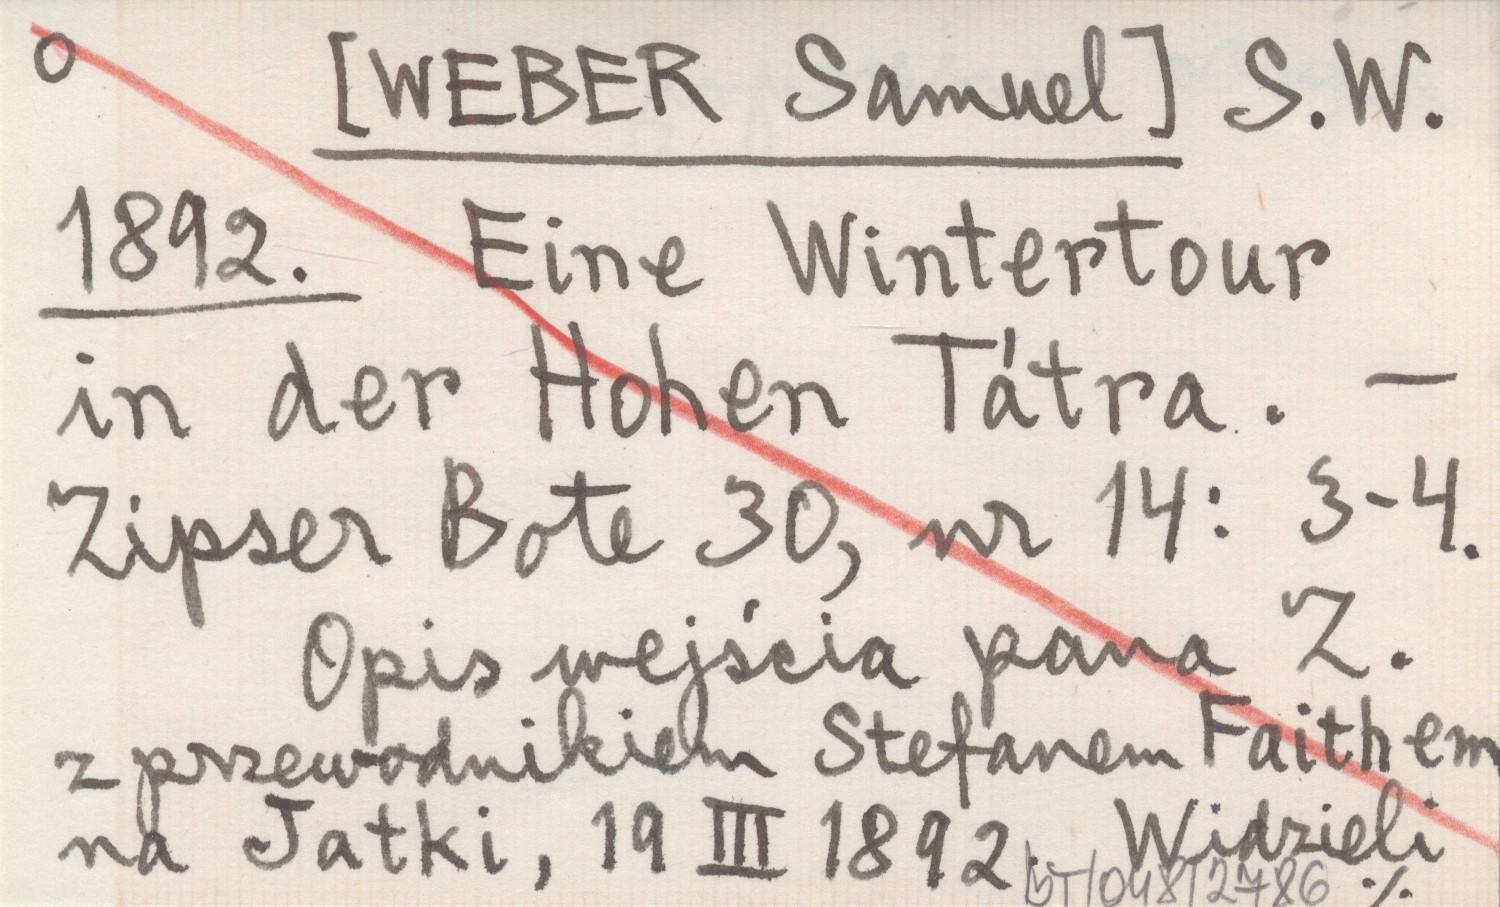 o [WEBER Samuel] S.W.
1892. Eine Wintertour
in der Hohen Tátra. —
Zipser Bote 30, nr 14: 3-4.
Opis wejścia pana Z.
z przewodnikiem Stefanem Faithem
na Jatki, 19 III 1892. Widzieli
BT/048/2786 ./.